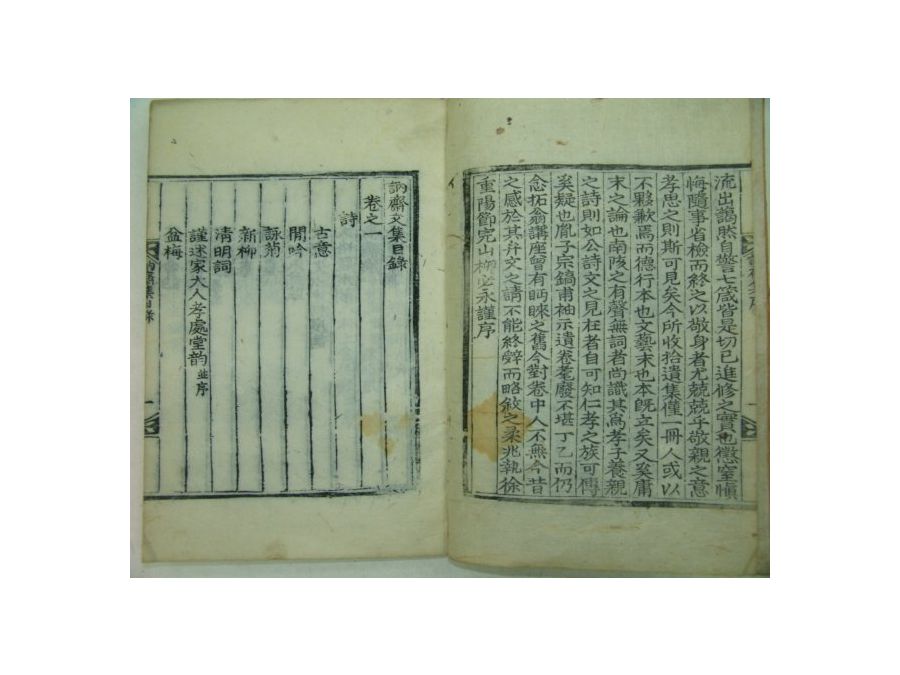 流出藹然自警七箴皆是切己進修之實也懲窒愼
悔隨事省檢而終之以敬身者尤兢兢乎敬親之意
孝思之則斯可見矣今所收拾遺集僅一冊人或以
不夥歉焉而德行本也文藝末也本旣立矣又奚庸
末之論也南陔之有聲無詞者尚識其爲孝子養親
之詩則如公詩文之見在者自可知仁孝之族可傳
奚疑也胤子宗鎬甫袖示遺卷耄廢不堪丁乙而仍
念拓翁講座曾有眄睞之舊今對卷中人不無今昔
之感於其弁文之請不能終辭而略敘之柔兆執徐
重陽節完山柳必永謹序
訥齋文集目錄
卷之一
詩
古意
閒吟
詠菊
新柳
淸明詞
謹述家大人孝處堂韵並序
盆梅